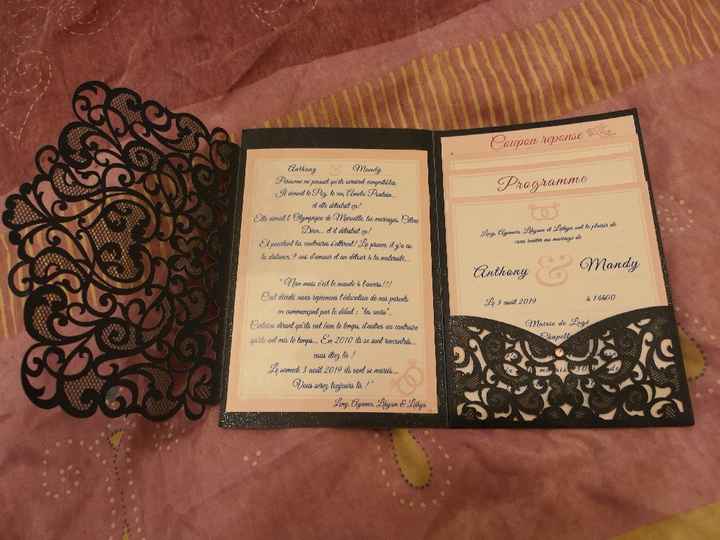 Anthony Mandy
Personne ne pensait qu'ils seraient compatibles.
Il aimait le Psg, le vin, Amélie Poulain...
et elle détestait ça!
Elle aimait l'Olympique de Marseille, les mariages, Céline
Dion... et il détestait ça!
Et pourtant les contraires s'attirent! Le prisme, il y a eu
la distance, l'
"Non mais c'est le monde à l'envers!!!
C'est décidé nous reprenons l'éducation de nos parents
en commençant par le début : "les unir".
Certains diront qu'ils ont bien le temps, d'autres au contraire
qu'ils ont mis le temps... En 2010 ils se sont rencontrés...
nous étiez là !
Le samedi 3 août 2019 ils vont se marier...
Vous serez toujours là !"
Lény, &
Coupon réponse
Programme
ont le plaisir de
vous inviter au mariage de
Anthony & Mandy
3 août 2019 à 14h00
Mairie de
Chapelle